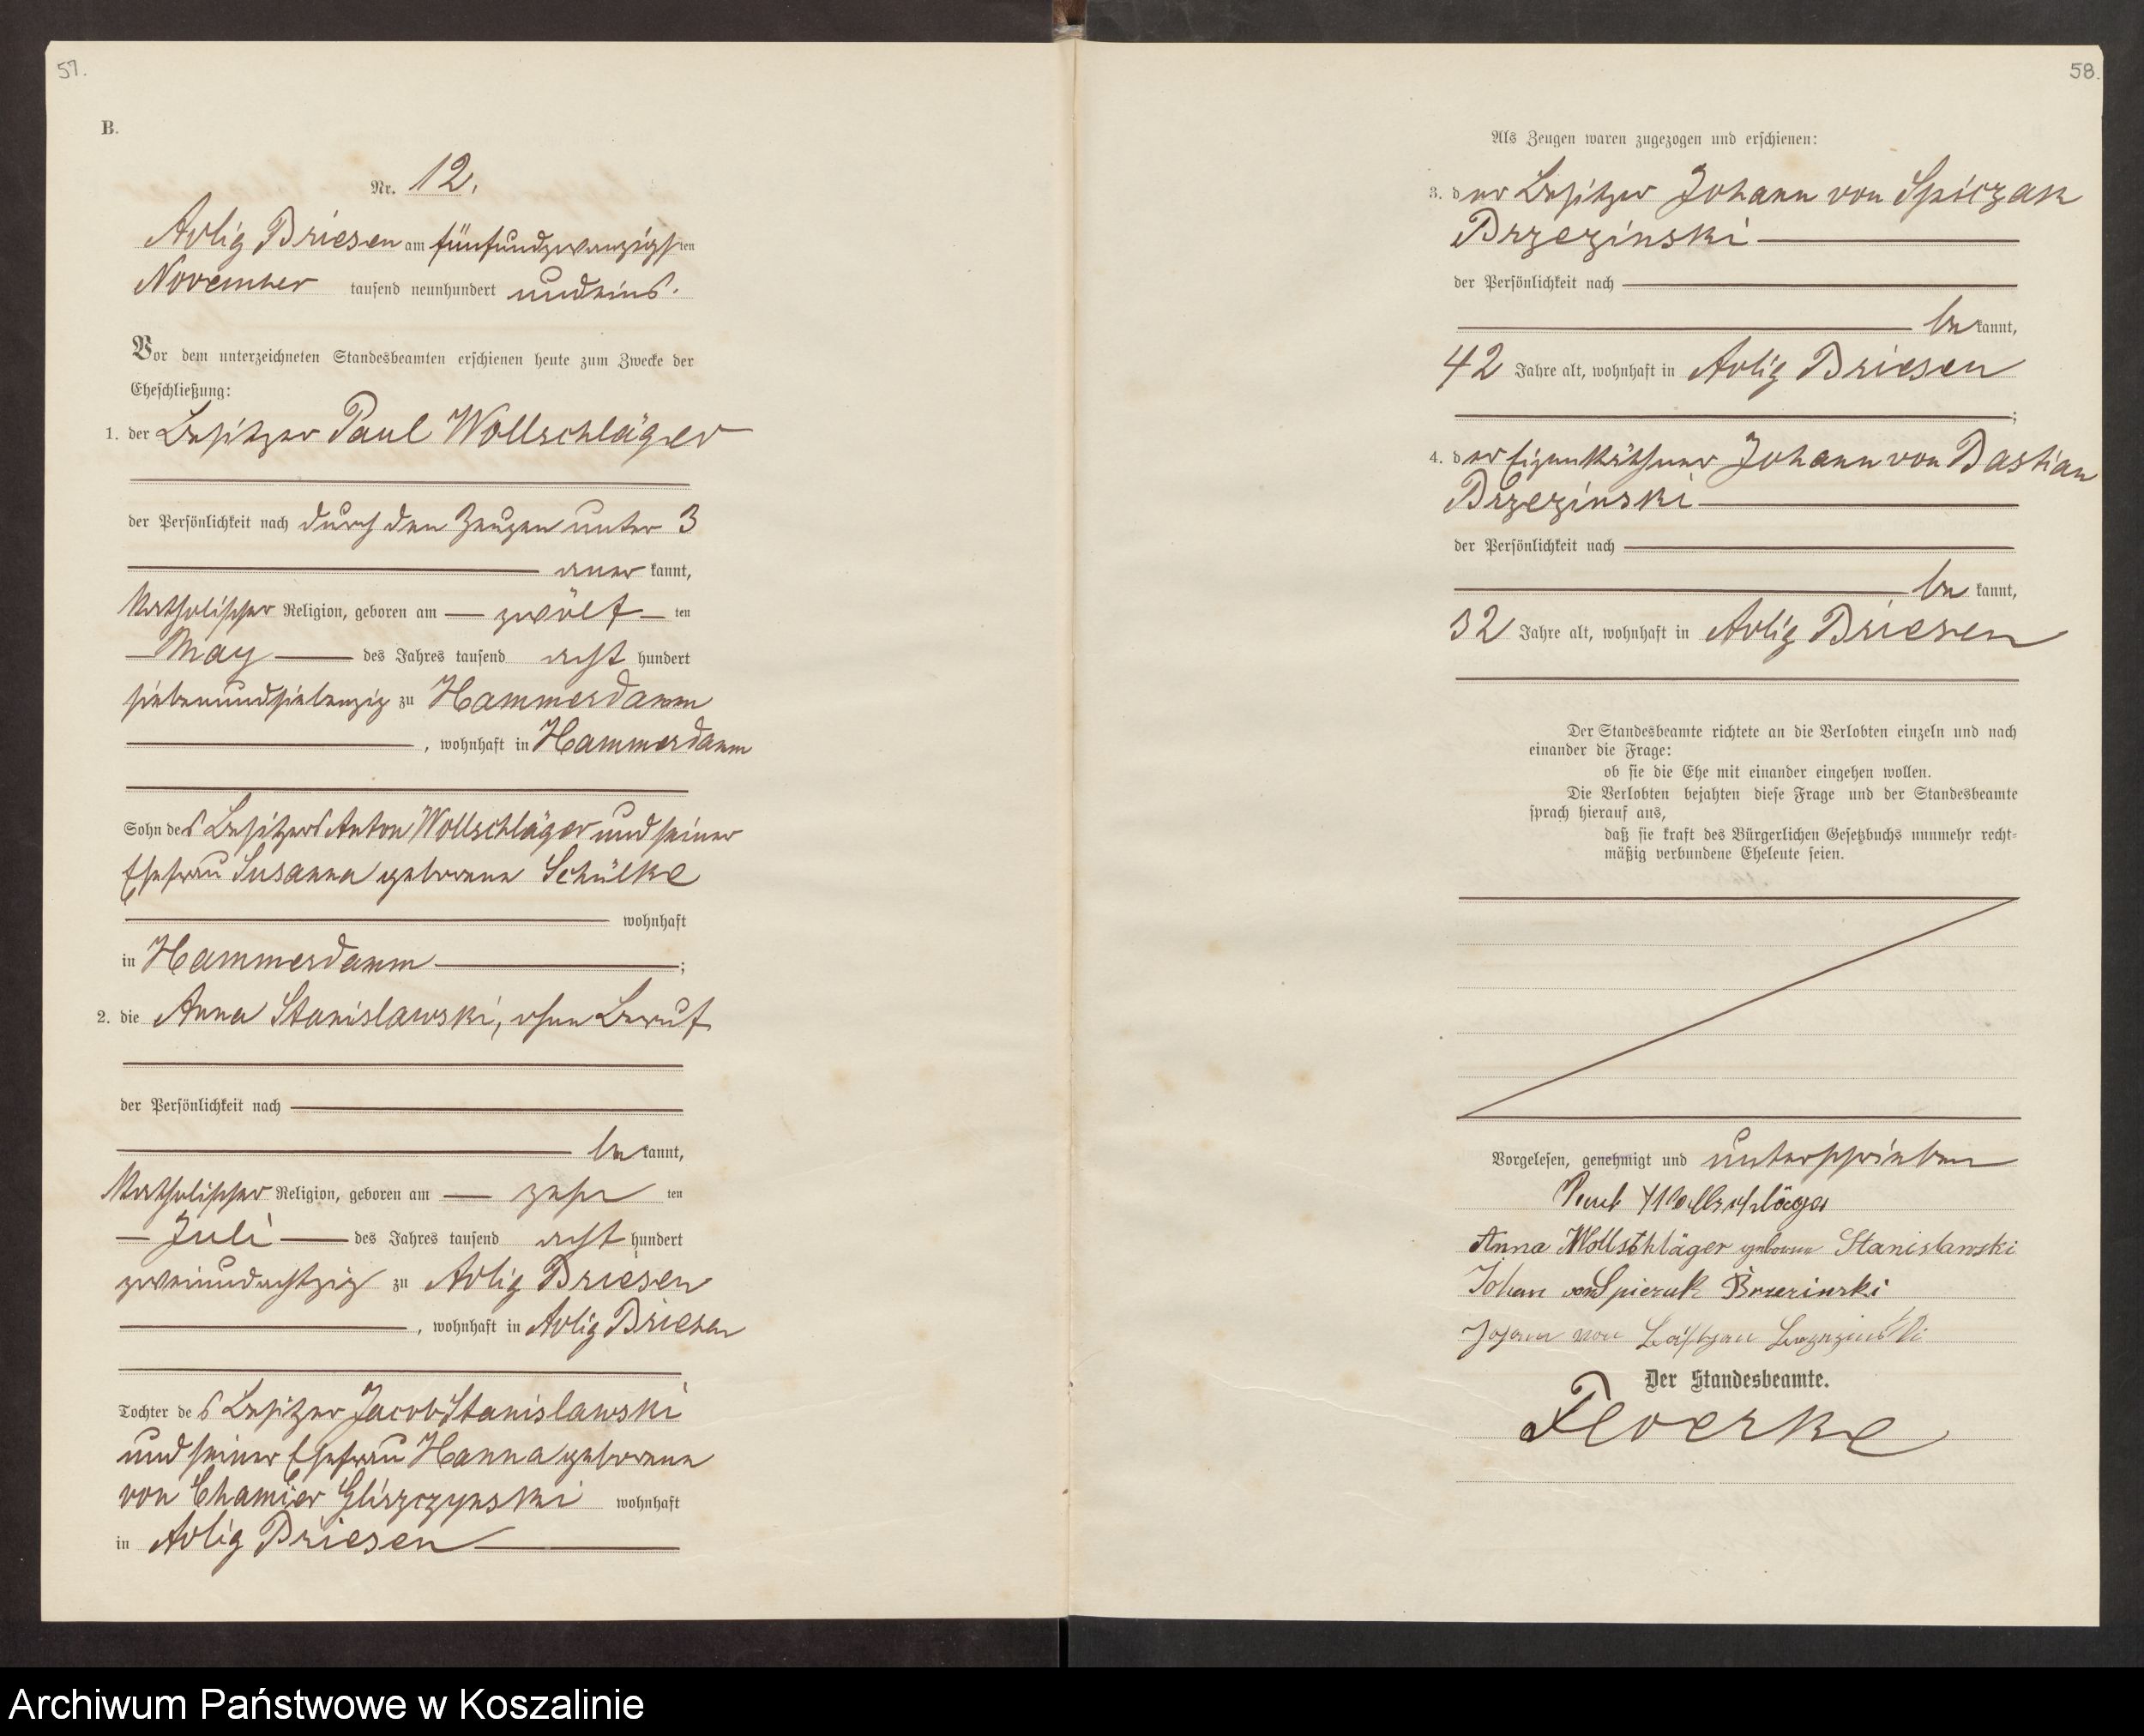 57.
B.
Nr. 12.
Adlig Briesen am fünfundzwanzigsten
November tausend neunhundert undeins.
Vor dem unterzeichneten Standesbeamten erschienen heute zum Zwecke der
Eheschließung:
1. der Besitzer Paul Wollschläger
der Persönlichkeit nach durch den Zeugen unter 3
aner kannt,
katholischer Religion, geboren am zwölf ten
May des Jahres tausend acht hundert
siebenundsiebenzig zu Hammerdamm
, wohnhaft in Hammerdamm
Sohn des Besitzers Anton Wollschläger und seiner
Ehefrau Susanna geborene Schülke
wohnhaft
in Hammerdamm ;
2. die Anna Stanislawski, ohne Beruf
der Persönlichkeit nach
be kannt,
katholischer Religion, geboren am zehn ten
Juli des Jahres tausend acht hundert
zweiundachtzig zu Adlig Briesen
, wohnhaft in Adlig Briesen
Tochter des Besitzer Jacob Stanislawski
und seiner Ehefrau Hanna geborene
von Chamier Gliszczynski wohnhaft
in Adlig Briesen
58.
Als Zeugen waren zugezogen und erschienen:
3. der Besitzer Johann von Spiczak
Brzezinski
der Persönlichkeit nach
be kannt,
42 Jahre alt, wohnhaft in Adlig Briesen
;
4. der Eigenkäthner Johann von Bastian
Brzezinski
der Persönlichkeit nach
be kannt,
32 Jahre alt, wohnhaft in Adlig Briesen
Der Standesbeamte richtete an die Verlobten einzeln und nach
einander die Frage:
ob sie die Ehe mit einander eingehen wollen.
Die Verlobten bejahten diese Frage und der Standesbeamte
sprach hierauf aus,
daß sie kraft des Bürgerlichen Gesetzbuchs nunmehr recht-
mäßig verbundene Eheleute seien.
Vorgelesen, genehmigt und unterschrieben
Paul Wollschläger
Anna Wollschläger geborene Stanislawski
Johan von Spiczak Brzezinski
Johann von
Der Standesbeamte.
Floerke
Archiwum Państwowe w Koszalinie